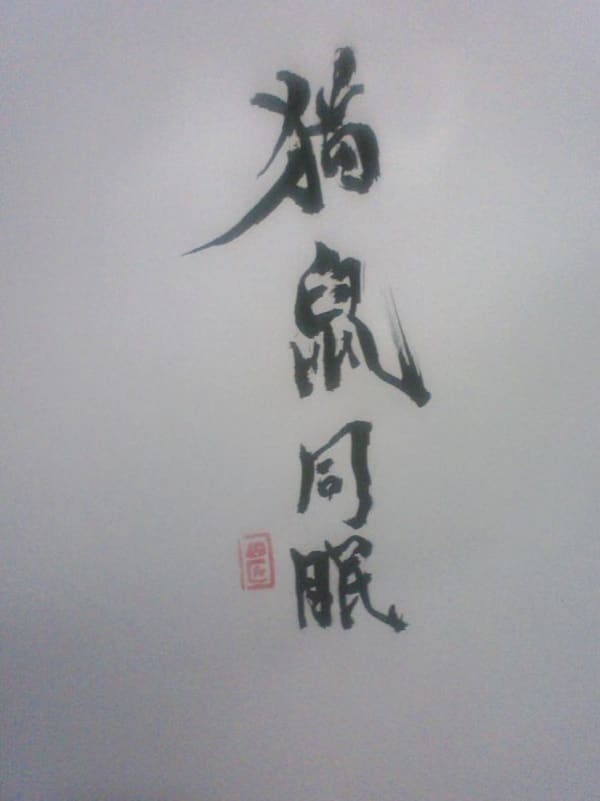 猫鼠同眠